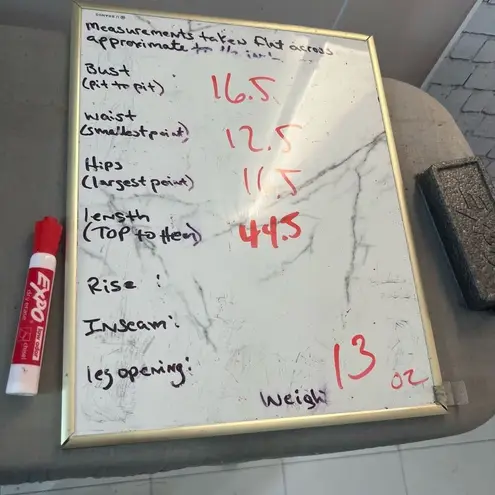 measurements taken flat across
approximate to the
Bust :
(pit to pit) 16.5
waist :
(smallest point) 12.5
Hips :
(largest point) 11.5
length :
(TOP to Hem) 44.5
Rise :
Inseam :
leg opening :
13 oz
Weight
EXPO